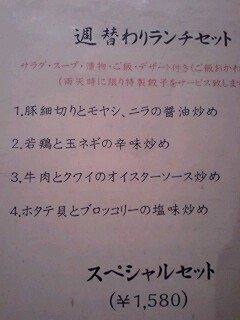 週替わりランチセット
サラダ・スープ・漬物・ご飯・デザート付き(ご飯おかわ
(雨天時に限り特製餃子をサービス致しま
1.豚細切りとモヤシ、ニラの醤油炒め
2.若鶏と玉ネギの辛味炒め
3.牛肉とクワイのオイスターソース炒め
4.ホタテ貝とブロッコリーの塩味炒め
スペシャルセット
(¥1,580)